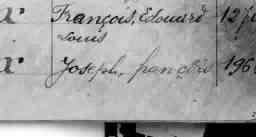 François, Edouard 12
Louis
Joseph, françois 196